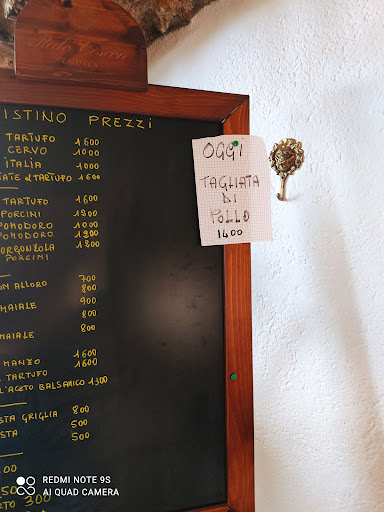 Italo Cescon
ISTINO PREZZi
TARTUFO 1600
CERVO 1000
iTALiA 1000
TARTUFO 1600
TARTUFO 1600
PORCiNi 1200
POMODORO 1000
POMODORO 1200
ORGONZOLA 1200
PORCiNi
ON ALLORO 700
800
MAIALE 900
800
MAIALE 800
MANZO 1600
TARTUFO 1600
L'ACETO BALSAMICO 1300
STA GRIGLIA 800
STA 500
500
00
50
TO 300
OGGi
TAGLiATA
Di
POLLO
1400
REDMI NOTE 9S
AI QUAD CAMERA